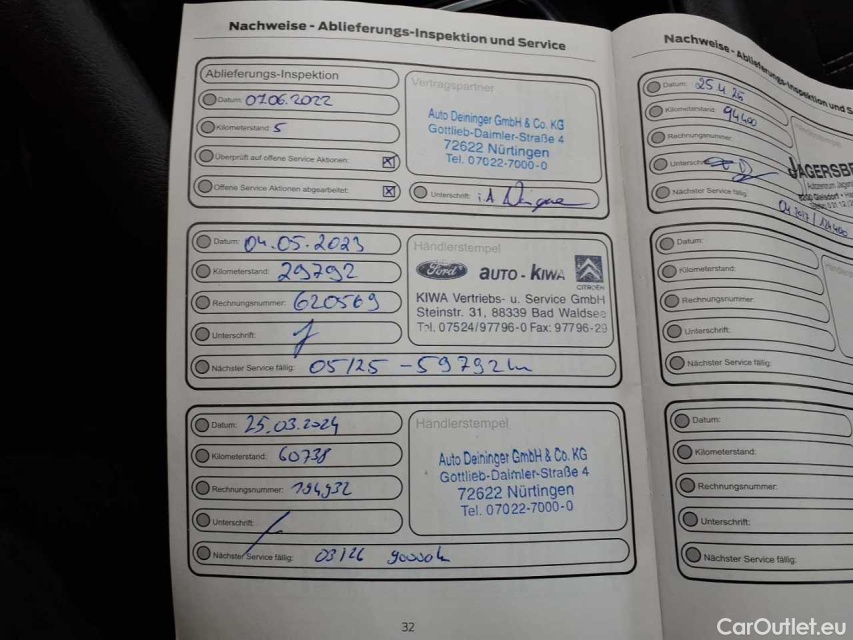 Nachweise - Ablieferungs-Inspektion und Service
Ablieferungs-Inspektion
Datum: 07.06.2022
Kilometerstand: 5
Überprüft auf offene Service Aktionen: ☒
Offene Service Aktionen abgearbeitet: ☒
Vertragspartner
Auto Deininger GmbH & Co. KG
Gottlieb-Daimler-Straße 4
72622 Nürtingen
Tel. 07022-7000-0
Unterschrift: i.A
Datum: 04.05.2023
Kilometerstand: 29792
Rechnungsnummer: 620569
Unterschrift:
Nächster Service fällig: 05/25 - 59792km
Händlerstempel
Ford AUTO - KIWA CITROËN
KIWA Vertriebs- u. Service GmbH
Steinstr. 31, 88339 Bad Waldsee
Tel. 07524/97796-0 Fax: 97796-29
Datum: 25.03.2024
Kilometerstand: 60738
Rechnungsnummer: 194932
Unterschrift:
Nächster Service fällig: 03/26 90000k
Händlerstempel
Auto Deininger GmbH & Co. KG
Gottlieb-Daimler-Straße 4
72622 Nürtingen
Tel. 07022-7000-0
32
Nachweise - Ablieferungs-Inspektion und S
Datum: 25 4 25
Kilometerstand: 94400
Rechnungsnummer:
Unterschrift:
Nächster Service fällig:
JAGERSBE
Datum:
Kilometerstand:
Rechnungsnummer:
Unterschrift:
Nächster Service fällig:
Datum:
Kilometerstand:
Rechnungsnummer:
Unterschrift:
Nächster Service fällig:
CarOutlet.eu